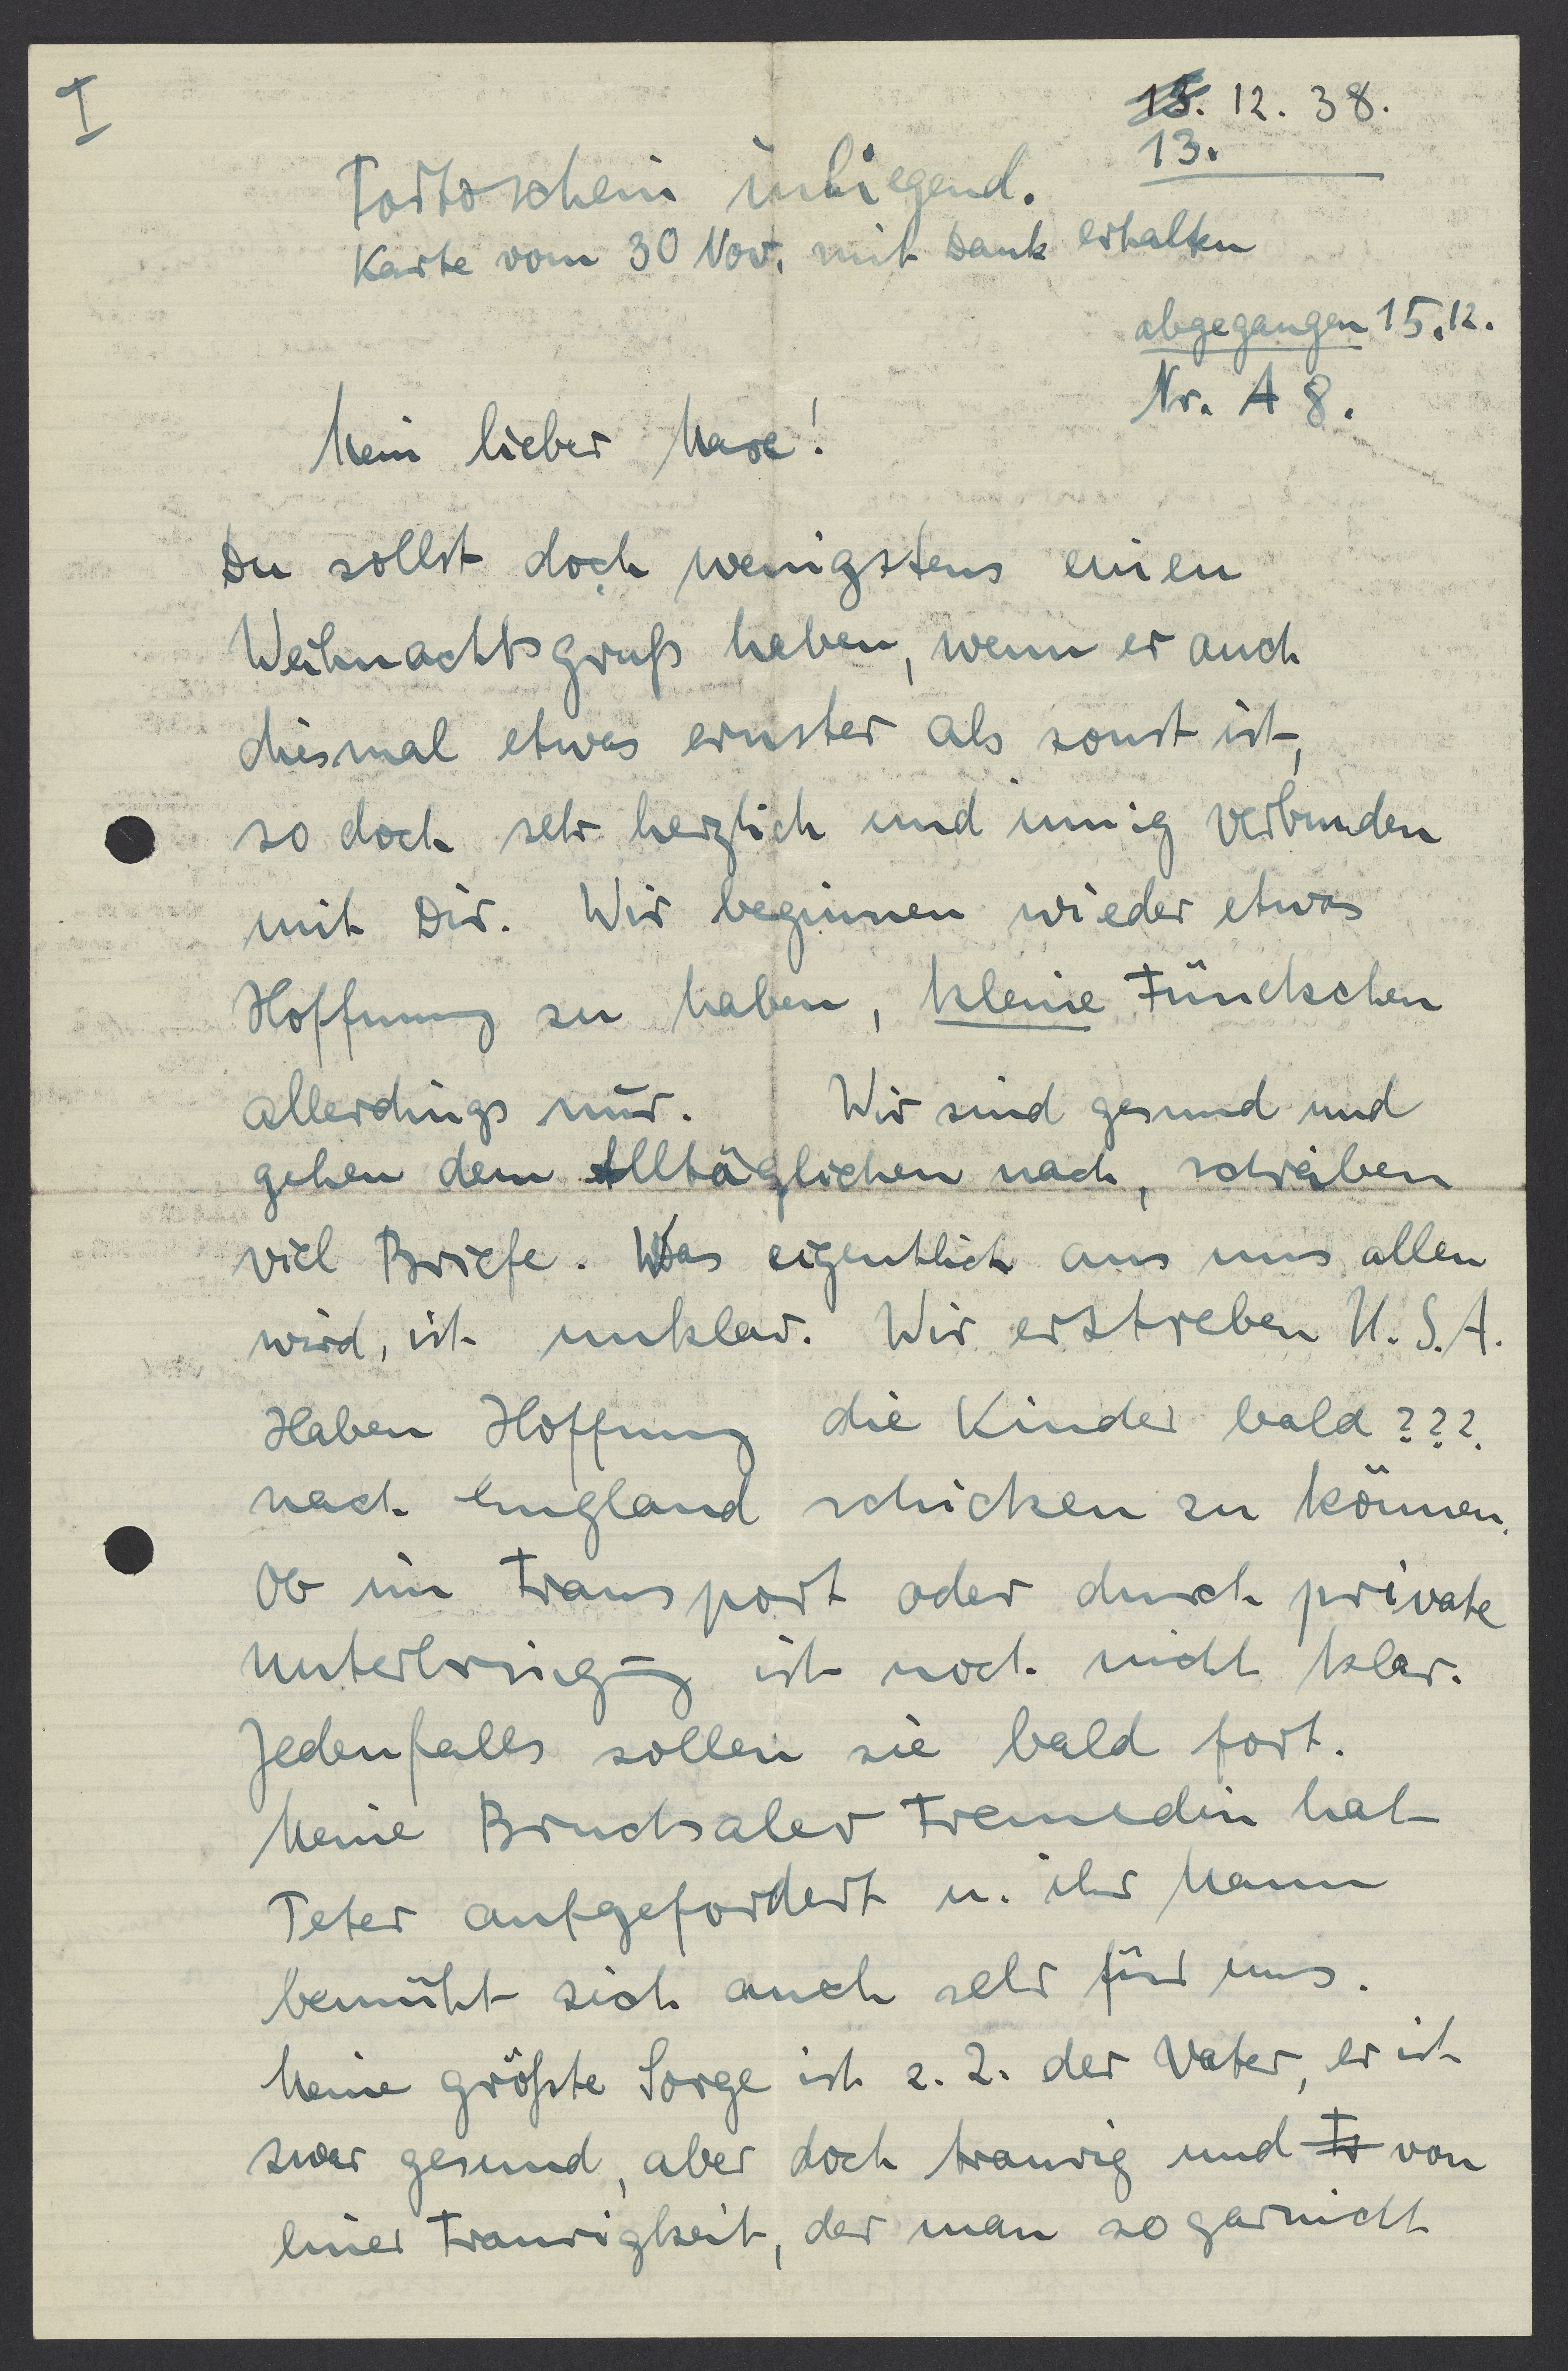 I
15. 12. 38.
13.
Portoschein inliegend.
Karte vom 30 Nov. mit Dank erhalten
abgegangen 15.12.
Nr. A 8.
Mein lieber Marc!
Du sollst doch wenigstens einen
Weihnachtsgruß haben, wenn er auch
diesmal etwas ernster als sonst ist,
so doch sehr herzlich und innig verbunden
mit Dir. Wir beginnen wieder etwas
Hoffnung zu haben, kleine Fünckchen
allerdings nur. Wir sind gesund und
gehen dem Alltäglichen nach, schreiben
viel Briefe. Was eigentlich aus uns allen
wird, ist unklar. Wir erstreben U.S.A.
Haben Hoffnung die Kinder bald ???
nach England schicken zu können.
Ob im Transport oder durch private
Unterbringung ist noch nicht klar.
Jedenfalls sollen sie bald fort.
Meine Bruchsaler Freundin hat
Peter aufgefordert u. ihr Mann
bemüht sich auch sehr für uns.
Meine größte Sorge ist z. Z. der Vater, er ist
zwar gesund, aber doch traurig und Tr von
einer Traurigkeit, der man so garnicht